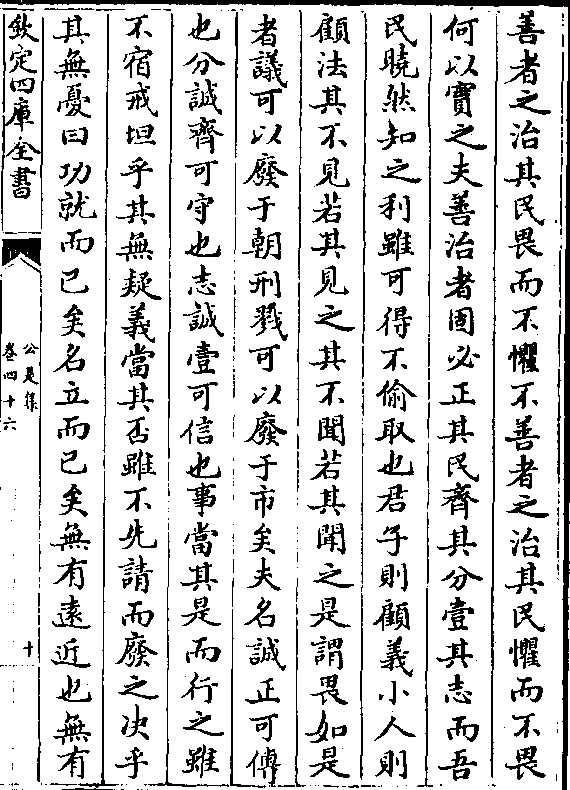 善者之治其民畏而不懼不善者之治其民懼而不畏
何以實之夫善治者固必正其民齊其分壹其志而吾
民曉然知之利雖可得不偷取也君子則顧義小人則
顧法其不見若其見之其不聞若其聞之是謂畏如是
者議可以廢于朝刑戮可以廢于市矣夫名誠正可傅
也分誠齊可守也志誠壹可信也事當其是而行之雖
不宿戒坦乎其無疑義當其否雖不先請而廢之決乎
其無憂曰功就而已矣名立而已矣無有遠近也無有
欽定四庫全書
公是集
卷四十六
十